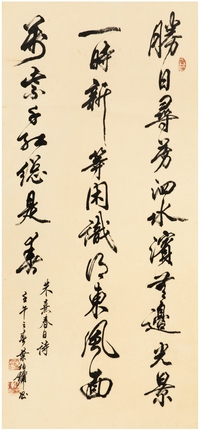 勝日尋芳泗水濱無邊光景
一時新等閑識得東風面
萬紫千紅總是春
朱熹春日詩
壬午之